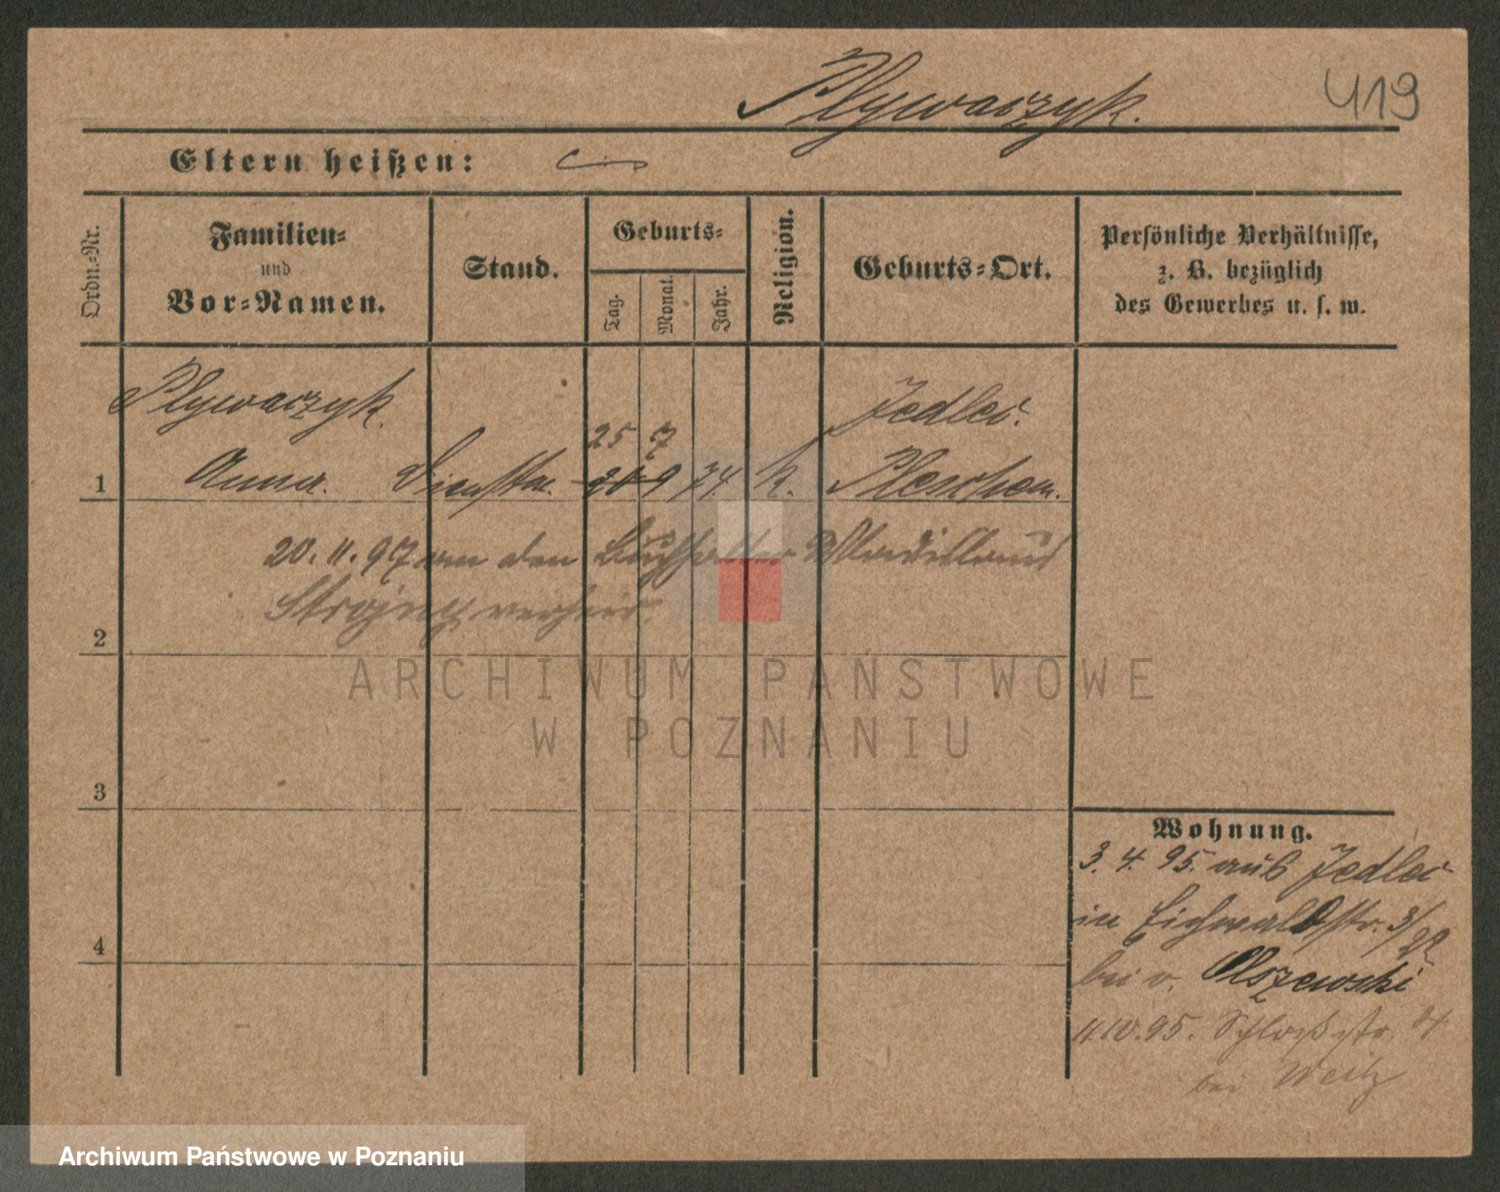 Plywaczyk.
419
Eltern heißen:
Ordn.-Nr.
Familien-
und
Vor-Namen.
Stand.
Geburts-
Tag.
Monat.
Jahr.
Religion.
Geburts-Ort.
Persönliche Verhältnisse,
z. B. bezüglich
des Gewerbes u. s. w.
Plywaczyk.
Jedlec.
25 7
1 Anna. Dienstm. 9 74. k. Pleschen.
20. 11. 97 an den Buchhalter Wladislaus
Strojny verheir.
2
ARCHIWUM PAŃSTWOWE
W POZNANIU
3
4
Wohnung.
3. 4. 95. aus Jedlec
in Eichwaldstr. 3/
22
bei v. Olszewski
11.10.95. Schloßstr. 4
bei Weitz
Archiwum Państwowe w Poznaniu